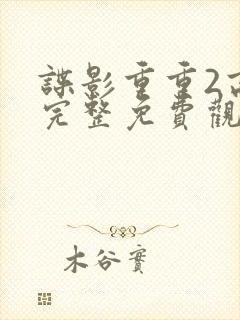 諜影重重2高
完整免費觀
木谷實